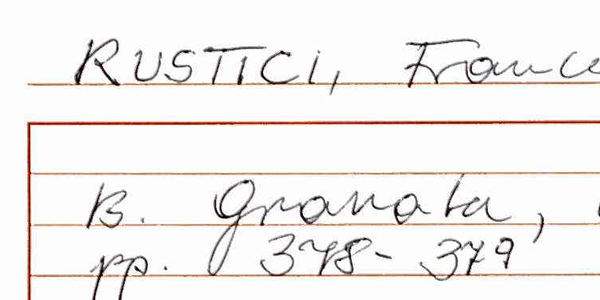 RUSTICI, France
B. Granata,
pp. 378-379